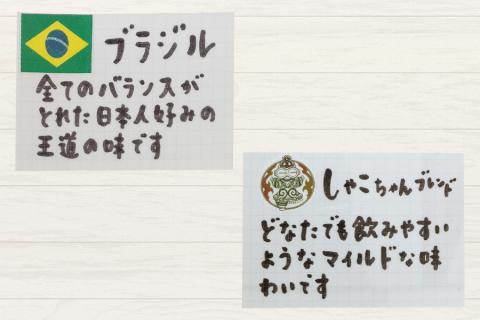 ブラジル
全てのバランスが
とれた日本人好みの
王道の味です
しゃこちゃんブレンド
どなたでも飲みやすい
ようなマイルドな味
わいです